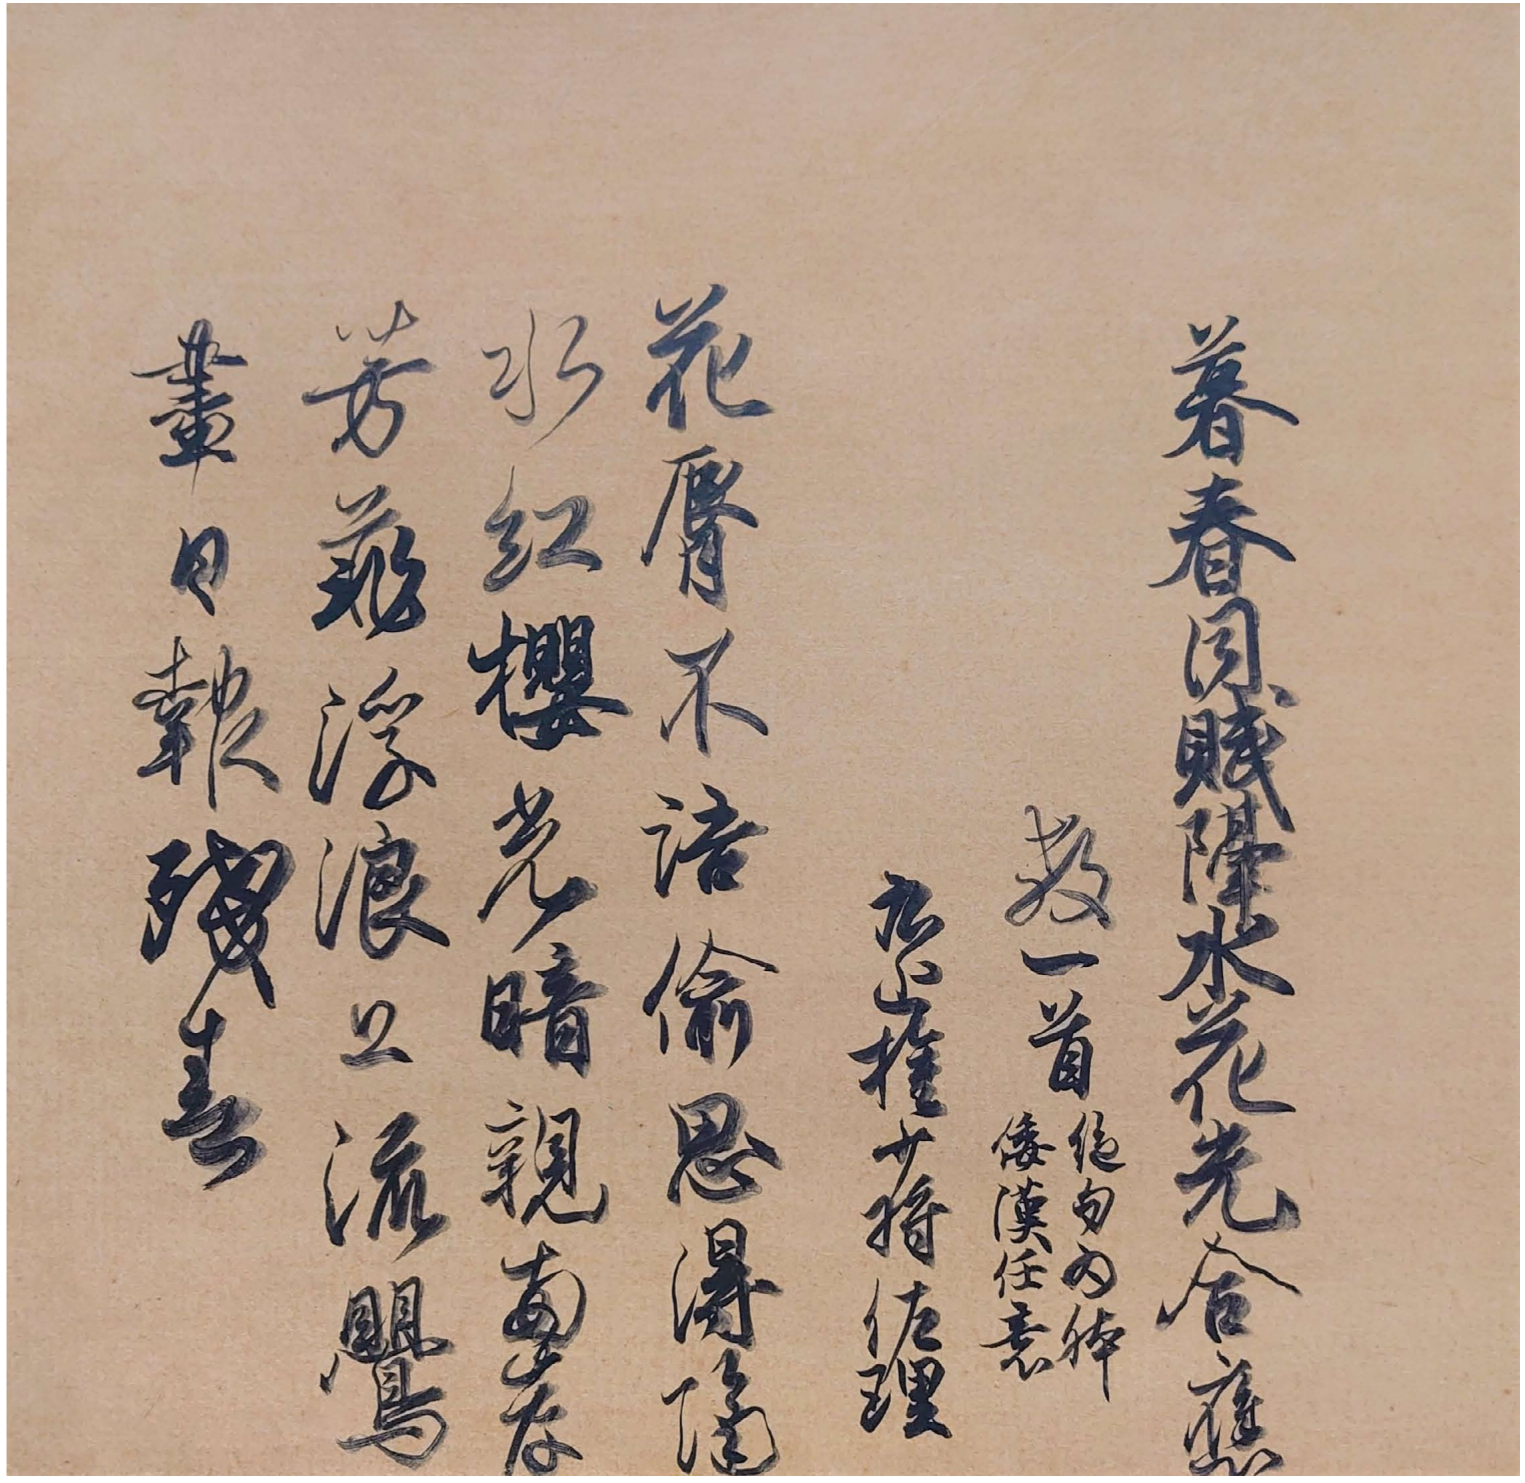 暮春同賦隔水花光合應
教一首
絶句為躰
倭漢任意
右近權少将佐理
花脣不語偷思得隔
水紅櫻光暗親兩岸
芳菲浮浪上流鸎
盡日報殘春